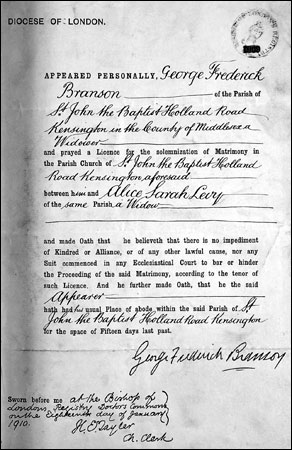 DIOCESE OF LONDON.
APPEARED PERSONALLY, George Frederick
Branson of the Parish of
St. John the Baptist Holland Road
Kensington in the County of Middlesex a
Widower
and prayed a Licence for the solemnization of Matrimony in
the Parish Church of St. John the Baptist Holland
Road Kensington aforesaid
between him and Alice Sarah Levy
of the same Parish a Widow
and made Oath that he believeth that there is no impediment
of Kindred or Alliance, or of any other lawful cause, nor any
Suit commenced in any Ecclesiastical Court to bar or hinder
the Proceeding of the said Matrimony, according to the tenor of
such Licence. And he further made Oath, that he the said
Appearer
hath had his usual Place of abode within the said Parish of St.
John the Baptist Holland Road Kensington
for the space of Fifteen days last past.
George Frederick Branson
Sworn before me at the Bishop of
London's Registry Doctors Commons
on the Eighteenth day of January
1910.
H.E. Tayler
Ch. Clark